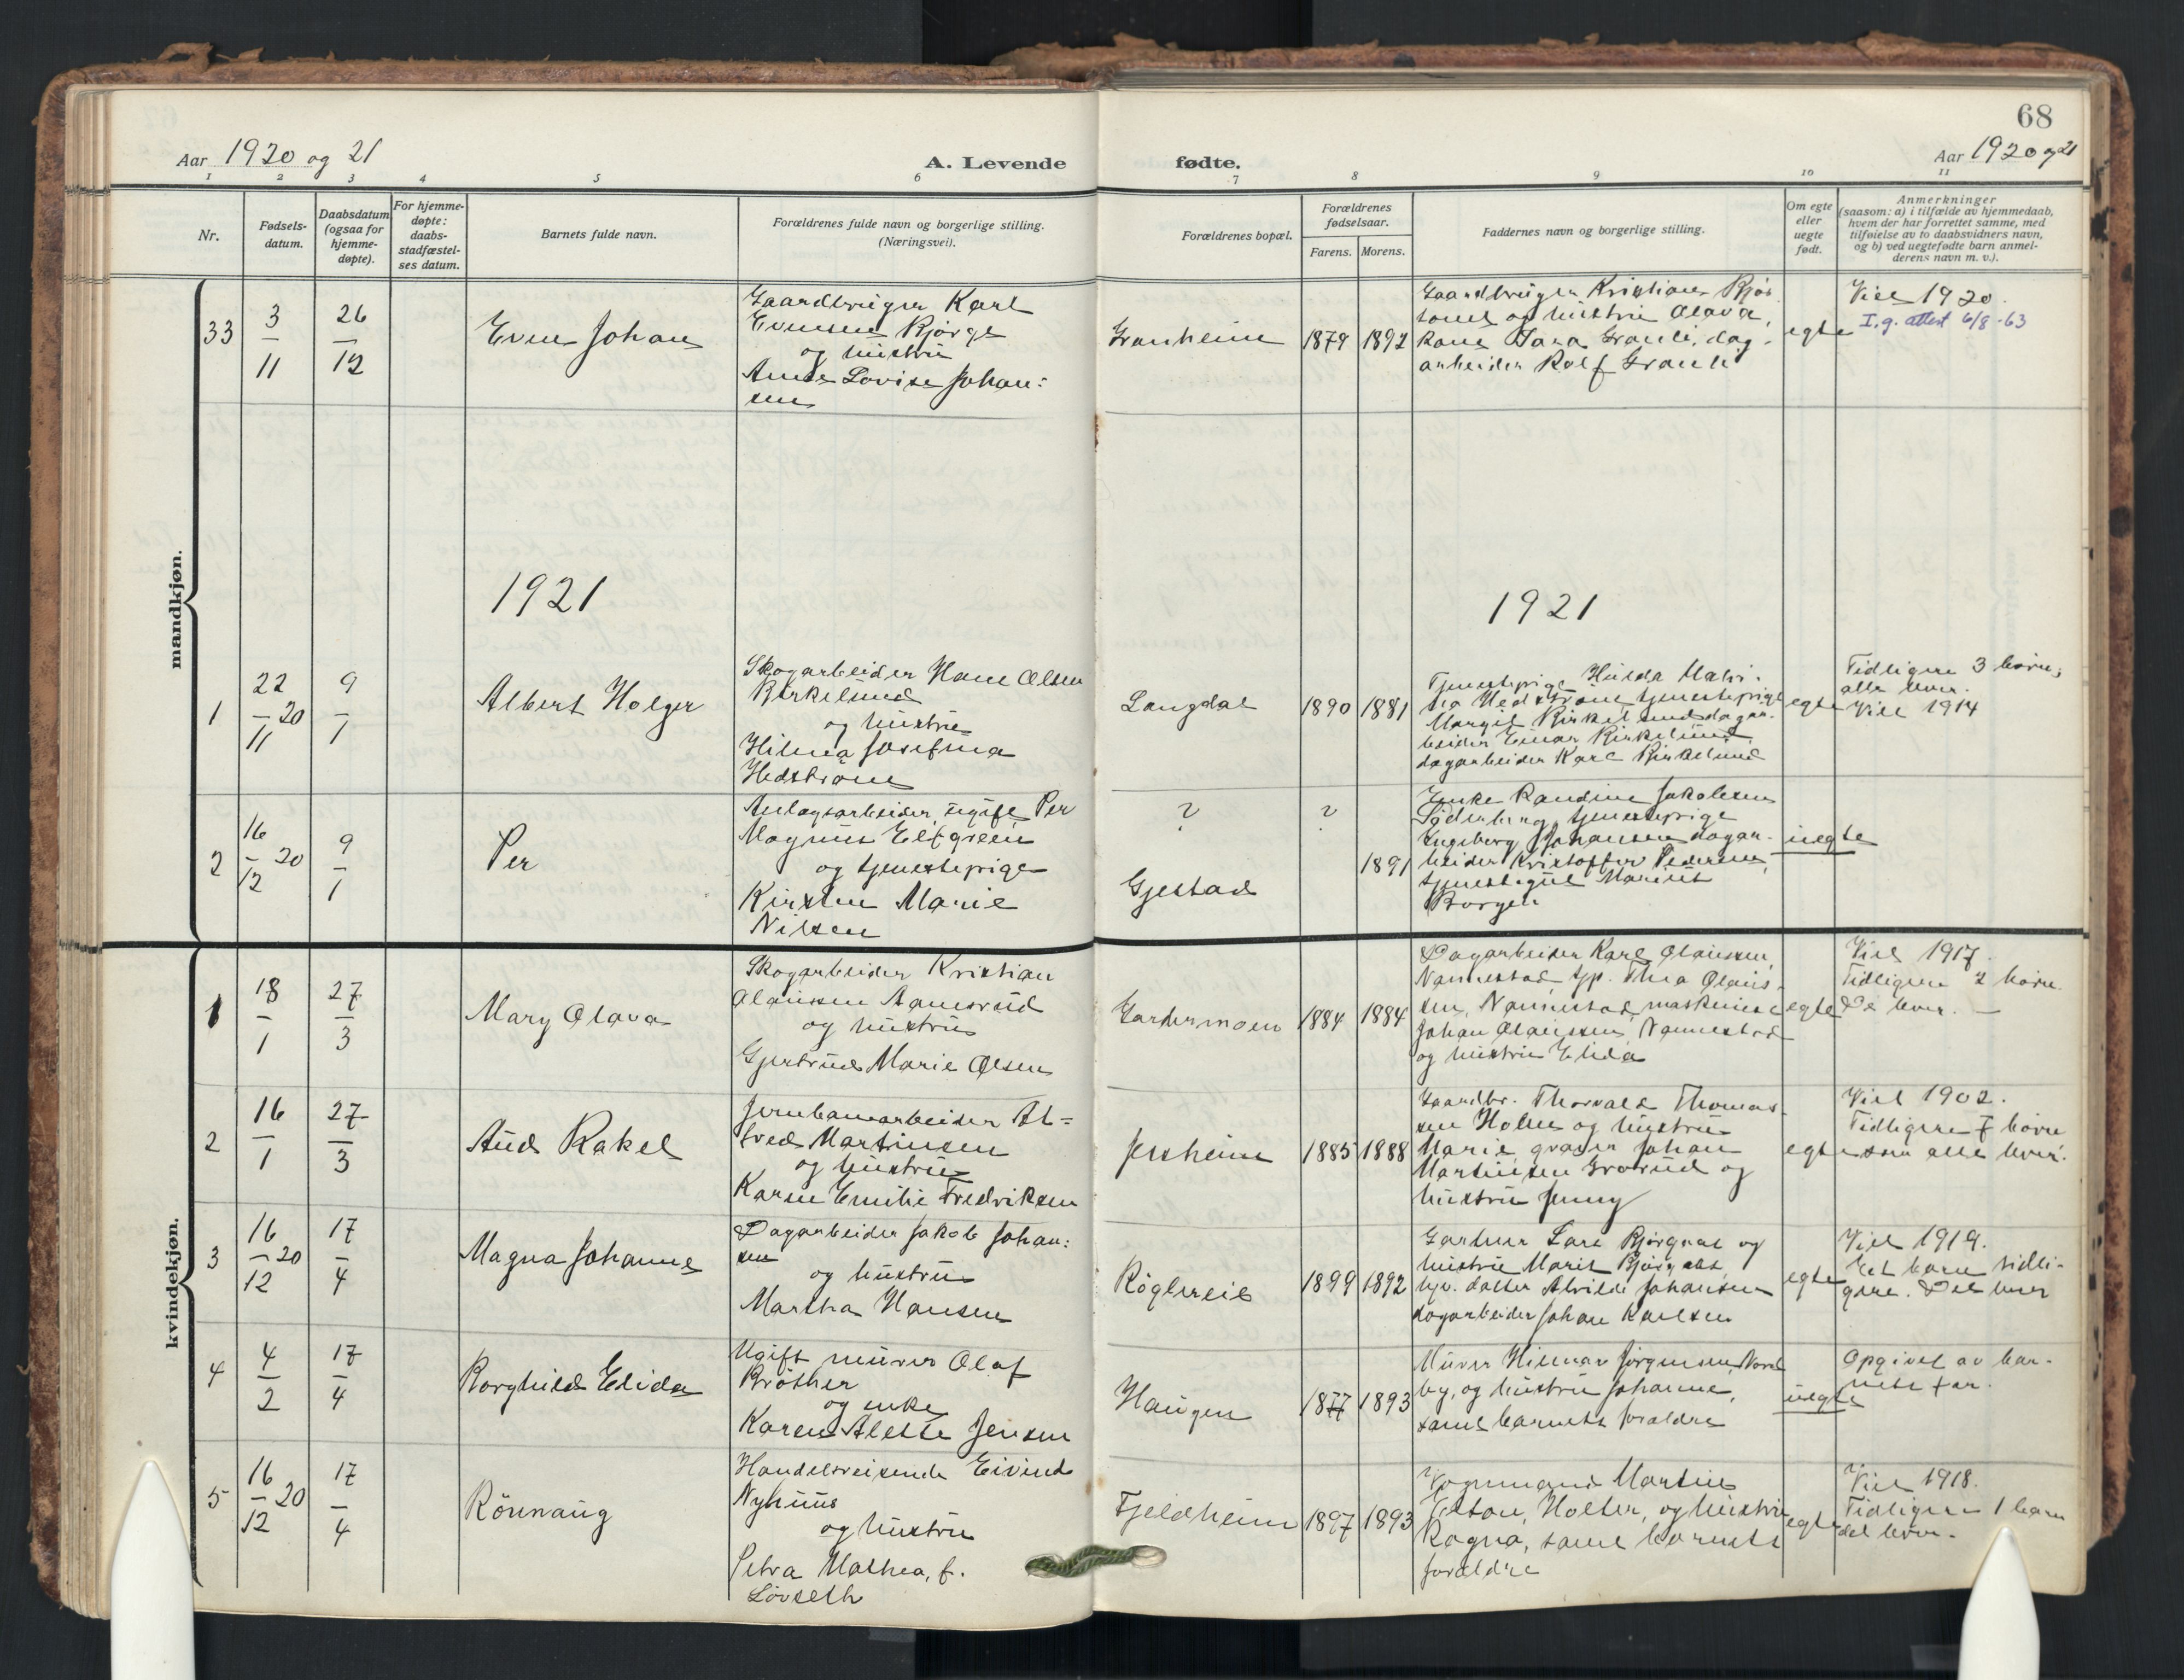 68
Aar 1920 og 21
A. Levende
fødte.
Aar 1920 og 21
1 2 3 4 5 6 7 8 9 10 11
Nr.
Fødsels-
datum.
Daabsdatum
(ogsaa for
hjemme-
døpte).
For hjemme-
døpte:
daabs-
stadfæstel-
ses datum.
Barnets fulde navn.
Forældrenes fulde navn og borgerlige stilling.
(Næringsvei).
Forældrenes bopæl.
Forældrenes
fødselsaar.
Farens. Morens.
Faddernes navn og borgerlige stilling.
Om egte
eller
uegte
født.
Anmerkninger
(saasom: a) i tilfælde av hjemmedaab,
hvem der har forrettet samme, med
tilføielse av to daabsvidners navn,
og b) ved uegtefødte barn anmel-
derens navn m. v.).
mandkjøn.
33
3
11
26
12
Even Johan
Gaardbruger Karl
Evensen Bjørge
og hustru
Anna Lovise Johan:
sen
Granheim
1879
1892
Gaardbruger Kristian Bjør
og hustru Olava,
Granli, dag-
arbeider Rolf Granli
egte
Viet 1920.
I.g. attest 6/8-63
1921
1921
1
22
11
20
9
1
Albert Holger
Skogarbeider Hans Olsen
Birkelund
og hustru
Hilma Josefina
Hedstrøm
Langdal
1890
1881
Tjenestepige Hulda
Hedstrøm, tjenestepige
Margit Birkelund, dagar-
beider Einar Birkelund
dagarbeider Karl Birkelund
egte
Tidligere 3 børn,
alle lever.
Viet 1914
2
16
12
20
9
1
Per
Anlægsarbeider, ugift Per
Magnus Elfgreen
og tjenestepige
Kirsten Marie
Nilsen
?
Gjestad
?
1891
Enke Randine Jakobsen
Söderberg, tjenestepige
Ingeborg Johansen, dagar-
beider Kristoffer Pedersen,
tjenestegut Marius
Borgen
uegte
kvindekjøn.
1
18
1
27
3
Mary Olava
Skogarbeider Kristian
Olaussen Aamsrud
og hustru
Gjertrud Marie Olsen
Gardermoen
1884
1884
Dagarbeider Karl Olaussen,
Nannestad, tjp. Thea Olaus-
sen, Nannestad, maskinist
Johan Olaussen, Nannestad
og hustru Elida
egte
Viet 1917.
Tidligere 2 børn.
De lever. —
2
16
1
27
3
Aud Rakel
Jernbanearbeider Al=
fred Martinsen
og hustru
Karen Emilie Fredriksen
Jessheim
1885
1888
Gaardbr. Thorvald Thomas-
sen Holm og hustru
Marie, graver Johan
Martinsen Grorud og
hustru Jenny
egte
Viet 1902.
Tidligere 7 børn
som alle lever.
3
16
12
20
17
4
Magna Johanne
Dagarbeider Jakob Johan:
sen
og hustru
Martha Hansen
Röglereie
1899
1892
Gartner Lars Bjørgaas og
hustru Marit Bjørgaas,
hjv. datter Alvilde Johansen
dagarbeider Johan Karlsen
egte
Viet 1919.
Et barn tidli-
gere. Det lever
4
4
2
17
4
Borghild Elida
Ugift murer Olaf
Bröther
og enke
Karen Alette Jensen
Haugen
1877
1893
Murer Hilmar Jörgensen, Nord
by, og hustru Johanne,
samt barnets foraldre
uegte
Opgivet av bar-
nets far.
5
16
12
20
17
4
Rönnaug
Handelsreisende Eivind
Nyhuus
og hustru
Petra Mathea, f.
Lövseth
Fjeldheim
1897
1893
Vognmand Martin
Holter, og hustru
Ragna, samt barnets
foraldre
egte
Viet 1918.
Tidligere 1 barn
det lever.